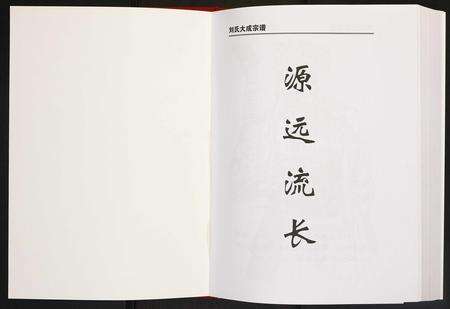 刘氏大成宗谱
源远流长